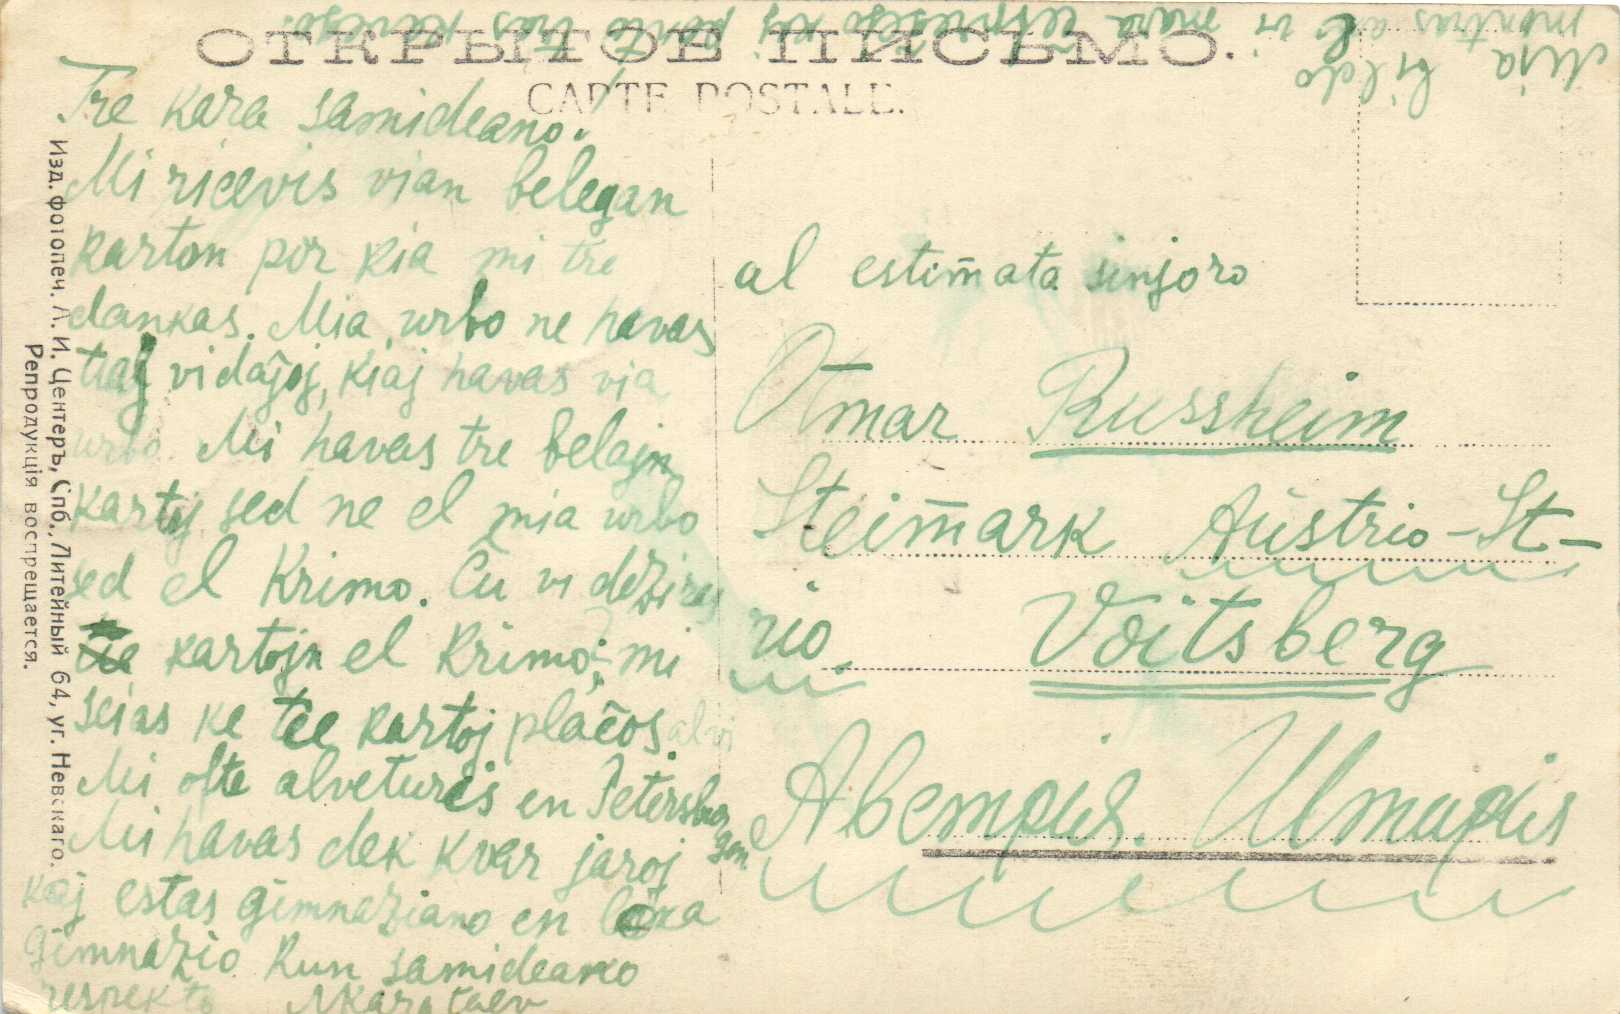 ОТКРЫТОЕ ПИСЬМО.
CARTE POSTALE.
Mia bildo
montras al vi mara kaj
Tre kara samideano!
Mi ricevis vian belegan
karton por kia mi tre
dankas. Mia urbo ne havas
tiaj vidaĵoj, kiaj havas via
urbo. Mi havas tre belajn
kartoj sed ne el mia urbo
sed el Krimo. Ĉu vi deziras
kartojn el Krimo; mi
scias ke tie kartoj plaĉos al vi
Mi ofte alveturis en Petersburgon.
Mi havas dek kvar jaroj
kaj estas gimnaziano en
gimnazio Kun samideano
respekto NKarataev
al estim̄ata sinjoro
Otmar Russheim
Steim̄ark Aŭstrio-St-
rio. Voitsberg
Австрія. Штирія
Изд. фотопеч. Л. И. Центеръ, Спб., Литейный 64, уг. Невскаго.
Репродукція воспрещается.